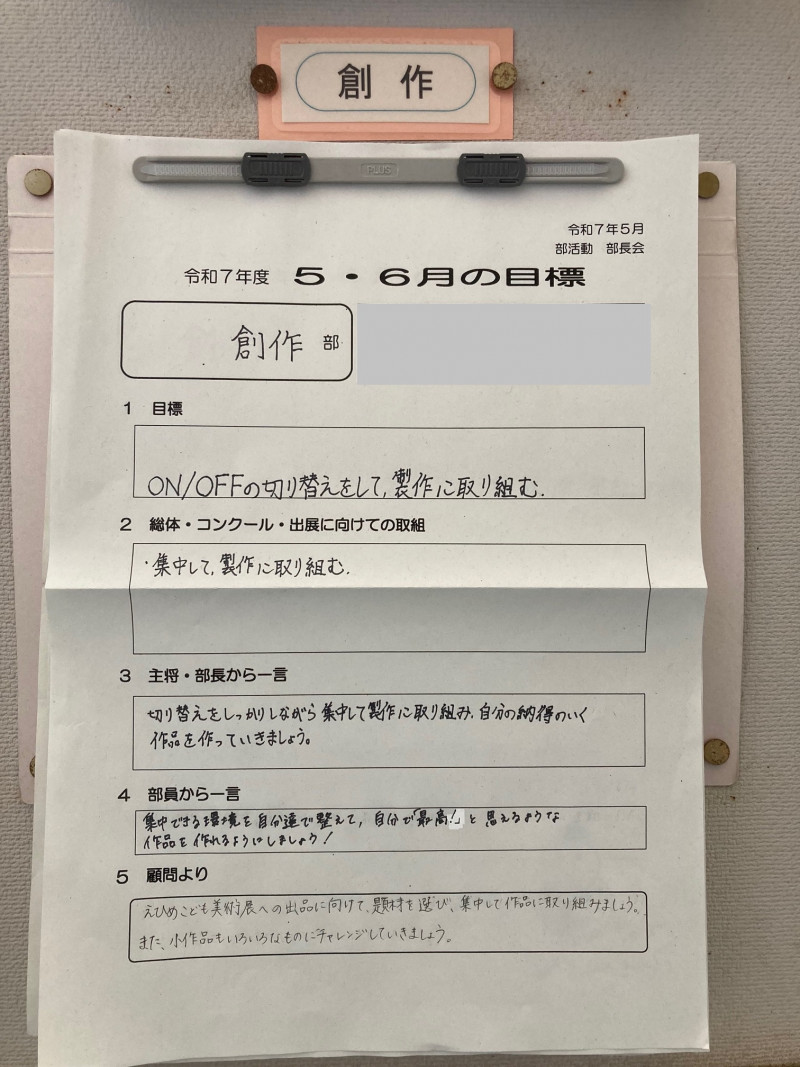 創作
PLUS
令和7年5月
部活動 部長会
令和7年度 5・6月の目標
創作 部
1 目標
ON/OFFの切り替えをして,製作に取り組む.
2 総体・コンクール・出展に向けての取組
・集中して,製作に取り組む.
3 主将・部長から一言
切り替えをしっかりしながら集中して製作に取り組み,自分の納得のいく
作品を作っていきましょう。
4 部員から一言
集中できる環境を自分達で整えて,自分で「最高!」と思えるような
作品を作れるようにしましょう!
5 顧問より
えひめこども美術展への出品に向けて、題材を選び、集中して作品に取り組みましょう。
また、小作品もいろいろなものにチャレンジしていきましょう。